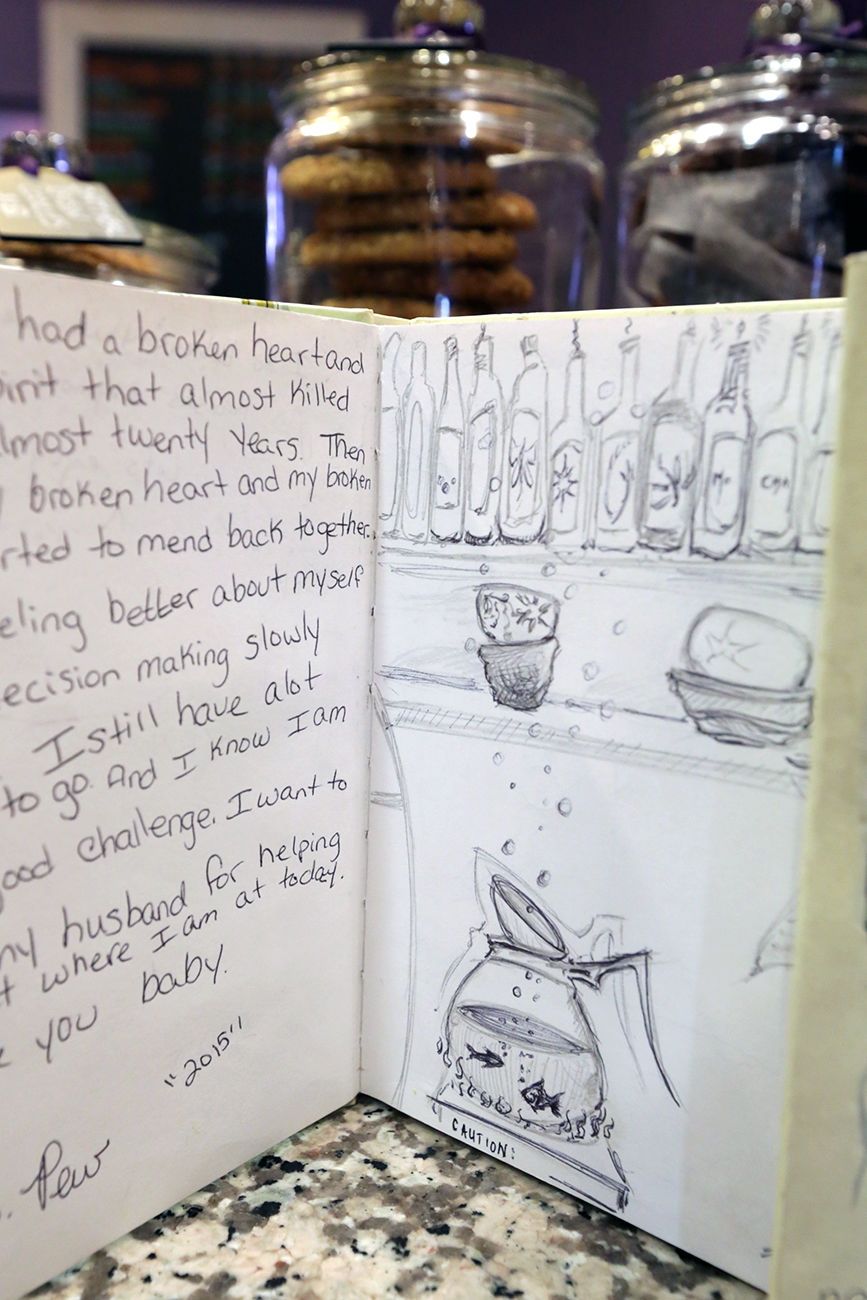 had a broken heart and
that almost killed
almost twenty years. Then
broken heart and my broken
rted to mend back together.
eling better about myself
ecision making slowly
I still have alot
to go. And I know I am
good challenge. I want to
my husband for helping
where I am at today.
you baby.
"2015"
Pew
CAUTION: